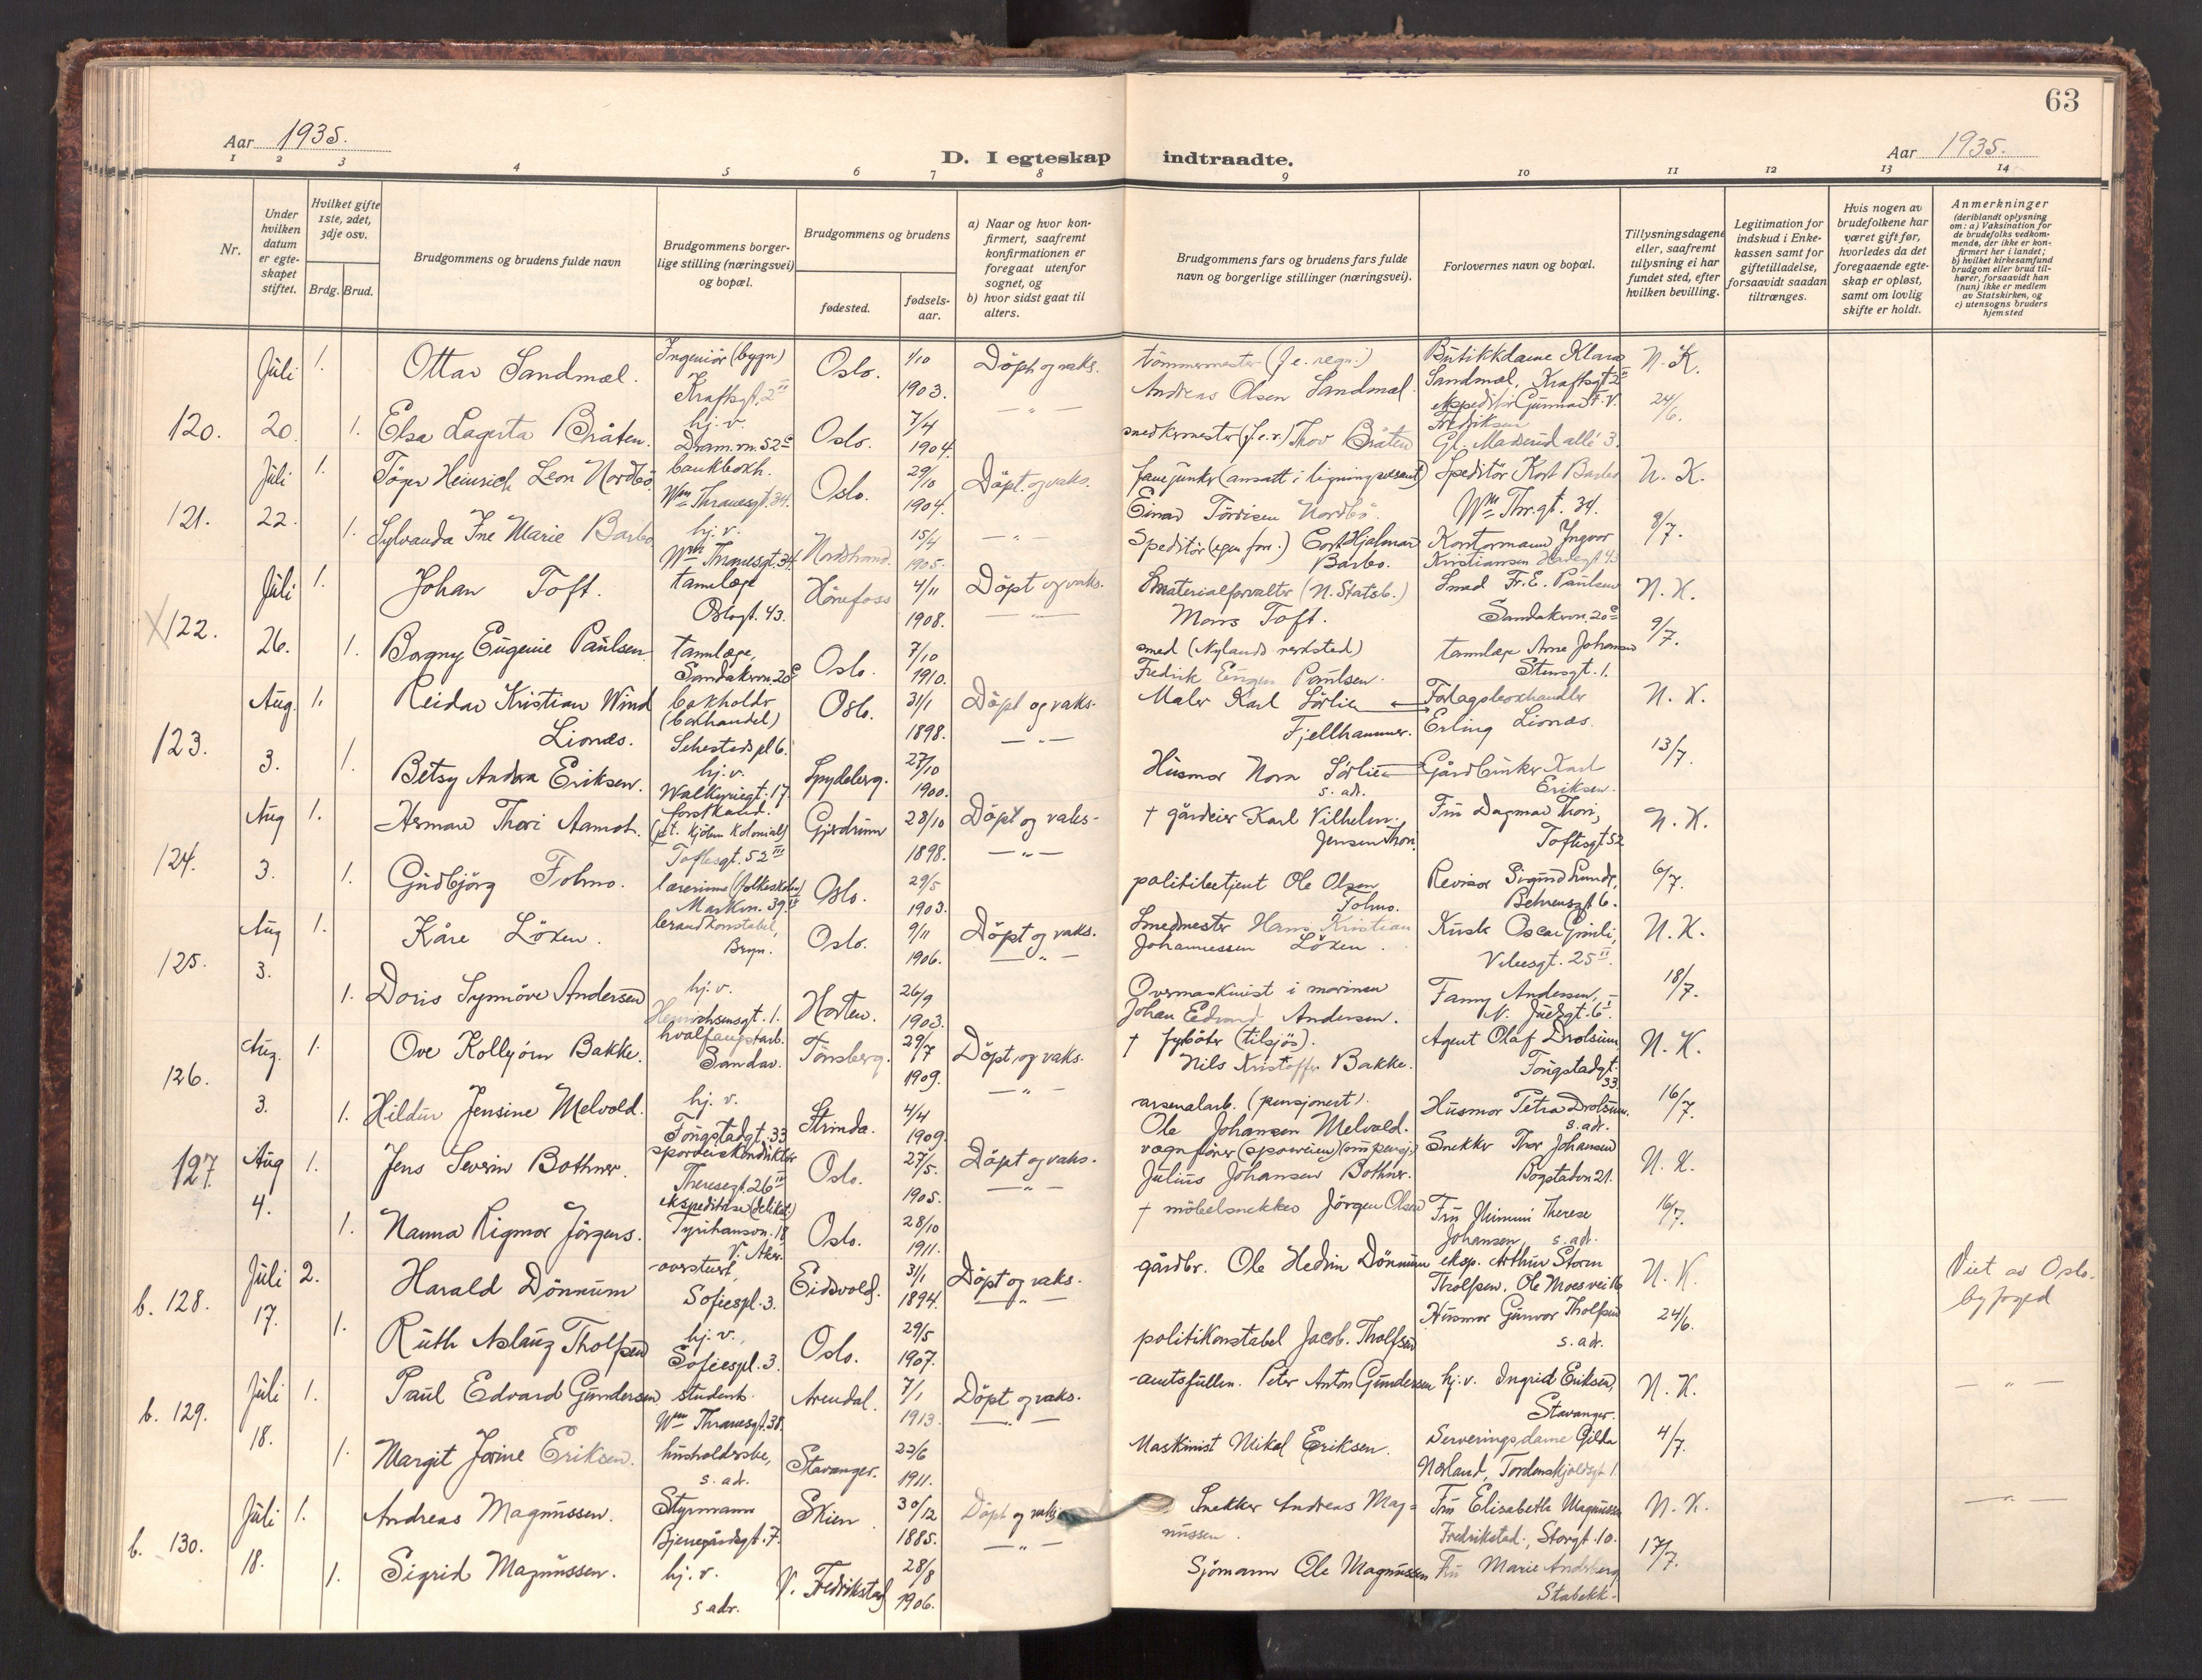 63
Aar 1935.
D. I egteskap indtraadte.
Aar 1935.
1 2 3 4 5 6 7 8 9 10 11 12 13 14
Nr.
Under hvilken datum er egteskapet stiftet.
Hvilket gifte 1ste, 2det, 3dje osv.
Brdg. Brud.
Brudgommens og brudens fulde navn
Brudgommens borgerlige stilling (næringsvei) og bopæl.
Brudgommens og brudens
fødested.
fødselsaar.
a) Naar og hvor konfirmert, saafremt konfirmationen er foregaat utenfor sognet, og
b) hvor sidst gaat til alters.
Brudgommens fars og brudens fars fulde navn og borgerlige stillinger (næringsvei).
Forlovernes navn og bopæl.
Tillysningsdagene eller, saafremt tillysning ei har fundet sted, efter hvilken bevilling.
Legitimation for indskud i Enkekassen samt for giftetilladelse, forsaavidt saadan tiltrænges.
Hvis nogen av brudefolkene har været gift før, hvorledes da det foregaaende egteskap er opløst, samt om lovlig skifte er holdt.
Anmerkninger
(deriblandt oplysning om: a) Vaksination for de brudefolks vedkommende, der ikke er konfirmert her i landet; b) hvilket kirkesamfund brudgom eller brud tilhører, forsaavidt han (hun) ikke er medlem av Statskirken, og c) utensogns bruders hjemsted
120. Juli 20. 1. Ottar Sandmæl. Ingeniör (bygn) Kraftsgt. 2 III Oslo. 1/10 1903. Döpt og vaks. tömmermester (f. e. regn.) Andreas Olsen Sandmæl. Butikkdame Klara Sandmæl, Kraftsgt 2 III N. K.
1. Elsa Lagerta Bråten. hj. v. Dram. vn. 52 c Oslo. 7/4 1904. — " — snedkermester (f. e. r.) Thor Bråten ekspeditör Gunnar F. V. Fredriksen Gl. Madserud allé 3. 24/6.
121. Juli 22. 1. Heinrich Leon Nordbö. bankbokh. Wm Thranesgt. 34. Oslo. 29/10 1904. Döpt og vaks. fanejunker (ansatt i ligningsvesenet) Einar Nordbö. Speditör Kort Barbo Wm Thr. gt. 34. N. K.
1. Sylvanda Ine Marie Barbo hj. v. Wm Thranesgt. 34. Nordstrand. 15/4 1905. — " — Speditör (egen forr.) Cort Hjalmar Barbo. Kontormann Ingvor Kristiansen 8/7.
X 122. Juli 26. 1. Johan Toft. tannlæge Oslogt. 43. Hönefoss 4/11 1908. Döpt og vaks. materialforvalter (N. Statsb.) Mons Toft. Smed Fr. E. Paulsen Sandakervn. 20 c N. K.
1. Borgny Eugenie Paulsen tannlæge, Sandakervn. 20 c Oslo. 7/10 1910. — " — smed (Nylands verksted) Fredrik Eugen Paulsen. tannlæge Arne Johansen Stensgt. 1. 9/7.
123. Aug. 3. 1. Reidar Kristian Wind Lionæs. bokholder (bokhandel) Sehesteds pl 6. Oslo. 31/1 1898. Döpt og vaks. Maler Karl Sörlie Fjellhammer. Forlagsbokhandler Erling Lionæs. N. K.
1. Betsy Andrea Eriksen. hj. v. Walkyriegt. 17. Spydeberg. 27/10 1900. — " — Husmor Nora Sörlie s. adr. Gårdbruker Karl Eriksen. 13/7.
124. Aug 3. 1. Herman Thori Aamot. forstkand. (pt. Kjöbm. Kolonial) Toftesgt. 52 III Gjerdrum 28/10 1898. Döpt og vaks. † gårdeier Karl Vilhelm Jensen Thori. Fru Dagmar Thori, Toftesgt 52 N. K.
1. Gudbjörg Folmo. lærerinne (folkeskolen) Markvn. 39 Oslo. 29/5 1903. — " — politibetjent Ole Olsen Folmo. Revisor Sigurd Lunde, Behrensgt 6. 6/7.
125. Aug 3. 1. Kåre Löken. brandkonstabel, Bryn. Oslo. 9/11 1906. Döpt og vaks. Smedmester Hans Kristian Johannessen Löken. Kusk Oscar Gimli, Vibesgt. 25 II. N. K.
1. Doris Synnöve Andersen hj. v. Henrichsensgt. 1. Horten. 26/9 1903. — " — Overmaskinist i marinen Johan Edvard Andersen. Fanny Andersen, N. Juelsgt. 6 I. 18/7.
126. Aug. 3. 1. Ove Kolbjörn Bakke. hvalfangstarb. Sandar. Tönsberg. 29/7 1909. Döpt og vaks. † fyrböter (tilsjös). Nils Kristoffer Bakke. Agent Olaf Drolsum, Fougstadgt. 33 N. K.
1. Hildur Jensine Melvold. hj. v. Fougstadgt. 33 Strinda. 4/4 1909. — " — arsenalarb. (pensjonert). Ole Johansen Melvold. Husmor Petra Drolsum. s. adr. 16/7.
127. Aug 4. 1. Jens Severin Bothner. sporveiskonduktör Theresegt. 26 III Oslo. 27/5. 1905. Döpt og vaks. vognförer (sporveien) Julius Johansen Bothner. Snekker Thor Johansen Bogstadvn 21. N. K.
1. Nanna Rigmor Jörgens. ekspeditrise (delikat.) V. Aker. Oslo. 28/10 1911. — " — † möbelsnekker Jörgen Olsen Fru Mimmi Therese Johansen, s. adr. 16/7.
b. 128. Juli 17. 2. Harald Dönnum overstuert, Sofiespl. 3. Eidsvold. 31/1 1894. Döpt og vaks. gårdbr. Ole Hedin Dönnum eksp. Arthur Storm Tholfsen, Ole Moes vei 16 N. K. Viet av Oslo byfoged
1. Ruth Aslaug Tholfsen hj. v., Sofiespl. 3. Oslo. 29/5 1907. — " — politikonstabel Jacob. Tholfsen Husmor Gunvor Tholfsen s. adr. 24/6.
b. 129. Juli 18. 1. Paul Edvard Gundersen student. Wm Thranesgt. 38. Arendal. 7/1 1913. Döpt og vaks. amtsfullm. Peter Anton Gundersen hj. v. Ingrid Eriksen, Stavanger. N. K. — " —
1. Margit Jorine Eriksen. husholderske, s. adr. Stavanger. 22/6 1911. — " — Maskinist Mikal Eriksen. Serveringsdame Gilda Nørland, Tordenskjoldsgt 1. 4/7.
b. 130. Juli 18. 1. Andreas Magnussen. Styrmann Bjerregårdsgt. 7. Skien 30/12 1885. Döpt og vaks Snekker Andreas Magnussen. Fru Elisabeth Magnussen Fredrikstad, Storgt. 10. N. K. — " —
1. Sigrid Magnussen. hj. v. s. adr. V. Fredrikstad 28/8 1906. — " — Sjömann Ole Magnussen Fru Marie Stabekk. 17/7.